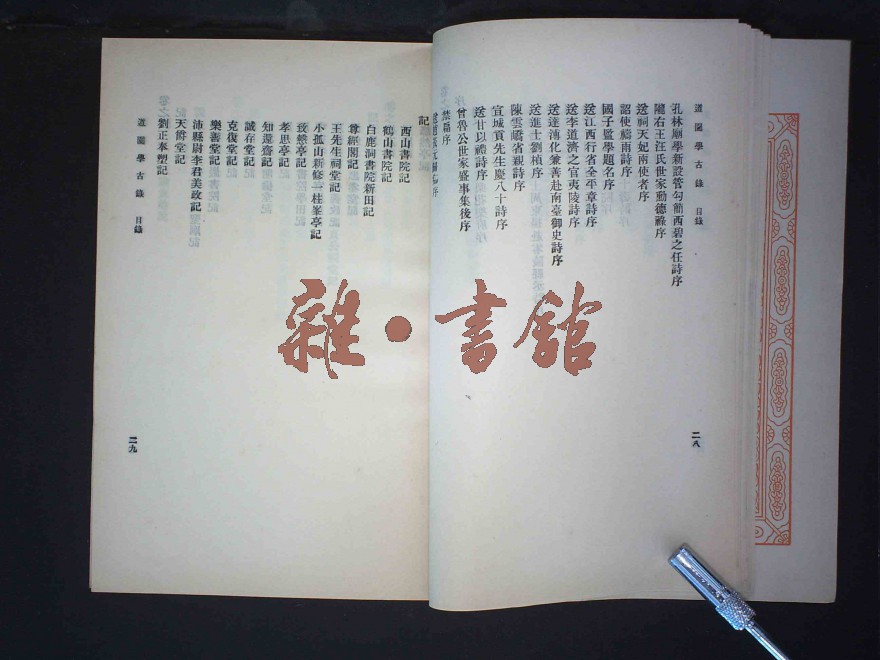 道園學古錄 目錄
孔林廟學新設管勾簡西碧之任詩序
隴右王汪氏世家勳德錄序
送祠天妃兩使者序
詔使禱雨詩序
國子監學題名序
送江西行省全平章詩序
送李道濟之官夷陵詩序
送達溥化兼善赴南臺御史詩序
送進士劉楨序
陳雲嶠省親詩序
宣城貢先生慶八十詩序
送甘以禮詩序
曾魯公世家盛事集後序
禁扁序
二八
記
西山書院記
鶴山書院記
白鹿洞書院新田記
尊經閣記
王先生祠堂記
小孤山新修一柱峯亭記
孝思亭記
知還齋記
誠存堂記
克復堂記
樂善堂記
沛縣尉李君美政記
天爵堂記
劉正奉塑記
道園學古錄 目錄
二九
雜·書館